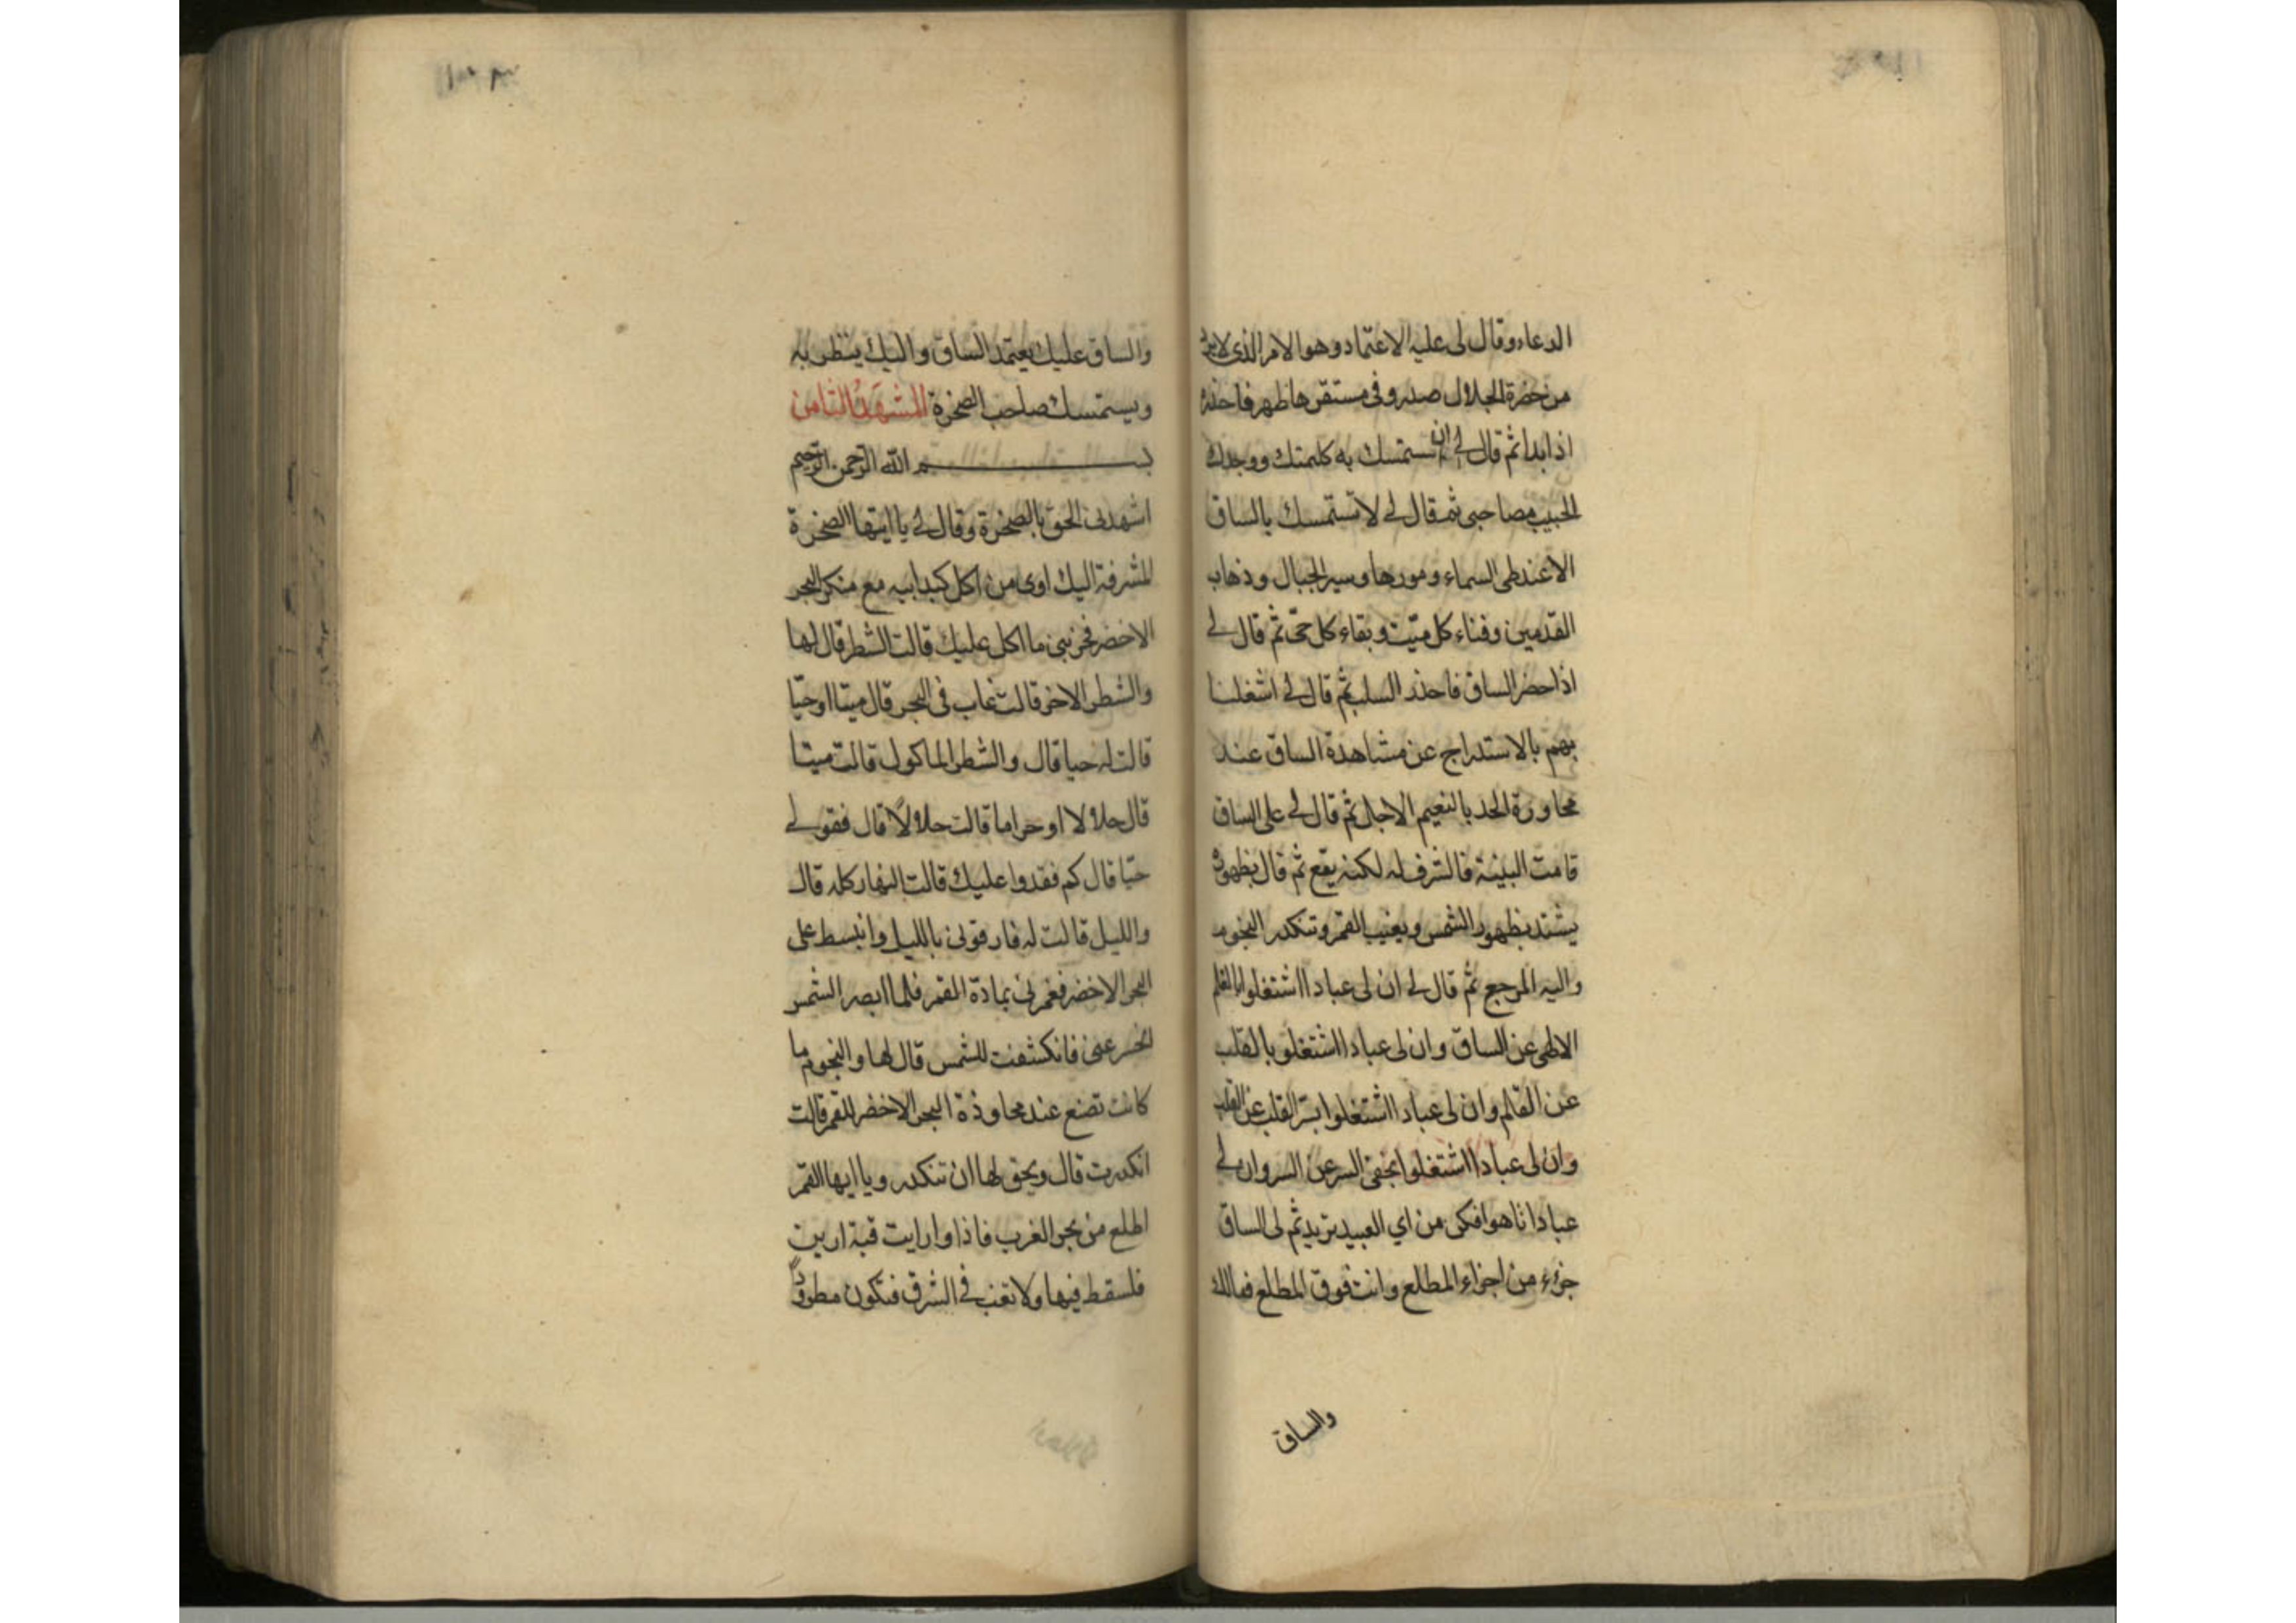 الدعاء وقال لى عليه الاعتماد وهو الامر الذى لا
من حضرة الجلال صدر وفى مستقرها ظهر فاحذره
اذا بدا ثم قال لے ان تستمسك به كلمتك ووجدك
الحبيب مصاحبى ثم قال لے لا تستمسك بالساق
الا عند طى السماء ومورها وسير الجبال وذهاب
القدمين وفناء كل ميّت وبقاء كل حىّ ثم قال لے
اذا حضر الساق فاحذر السلب ثم قال لے اشغلنا
بهم بالاستدراج عن مشاهدة الساق عند
محاورة الحد بالنعيم الاجل ثم قال لے على الساق
قامت البينة فالشرف له لكنه يقع ثم قال بظهوره
يشتد بظهور الشمس ويغيب القمر وتنكدر النجوم
واليه المرجع ثم قال لے ان لى عبادا اشتغلوا بالقلم
الالهى عن الساق وان لى عبادا اشتغلو بالقلب
عن القلم وان لى عبادا اشتغلوا بسرّ القلب عن القلب
وان لى عبادا اشتغلوا بخفى السر عن السر وان لے
عبادا تاهوا فكن من اي العبيد تريد ثم لى الساق
جزء من اجزاء المطلع وانت فوق المطلع فمالك
والساق
والساق عليك يعتمد الساق واليك ينظر به
ويستمسك صاحب الصخرة المشهد الثامن
بسم الله الرحمن الرحيم
اشهدنى الحق بالصخرة وقال لے يا ايتها الصخرة
المشرفة اليك اوى من اكل كبد ابيه مع منكر البحر
الاخضر فخبرينى ما اكل عليك قالت الشطر قال لها
والشطر الاخر قالت غاب فى البحر قال ميتا او حيّا
قالت له حيا قال والشطر الماكول قالت ميتا
قال حلالا او حراما قالت حلالاً قال فقولے
حيّا قال كم فقدوا عليك قالت النهار كله قال
والليل قالت له فارقونى بالليل وانبسط على
البحر الاخضر فغمرنى بمادة القمر فلما ابصر الشمس
انحسر عنى فانكشفت للشمس قال لها والنجوم ما
كانت تصنع عند محاوذة البحر الاخضر للقمر قالت
انكدرت قال ويحق لها ان تنكدر ويا ايها القمر
اطلع من بحر الغرب فاذا وارايت قبة ارين
فلسقط فيها ولا تغب فے الشرق فتكون مطرودًا